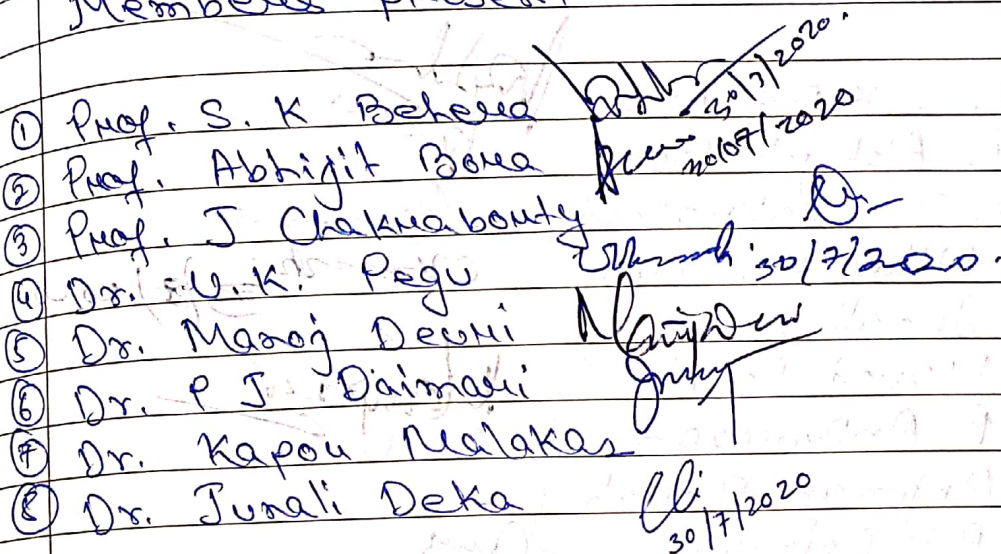 Members present
① Prof. S. K Behera 30/7/2020.
② Prof. Abhijit Bora 30/07/2020
③ Prof. J Chakraborty
④ Dr. U. K. Pegu 30/7/2020.
⑤ Dr. Manoj Deuri
⑥ Dr. P J Daimari
⑦ Dr. Kapou Malakar
⑧ Dr. Junali Deka 30/7/2020